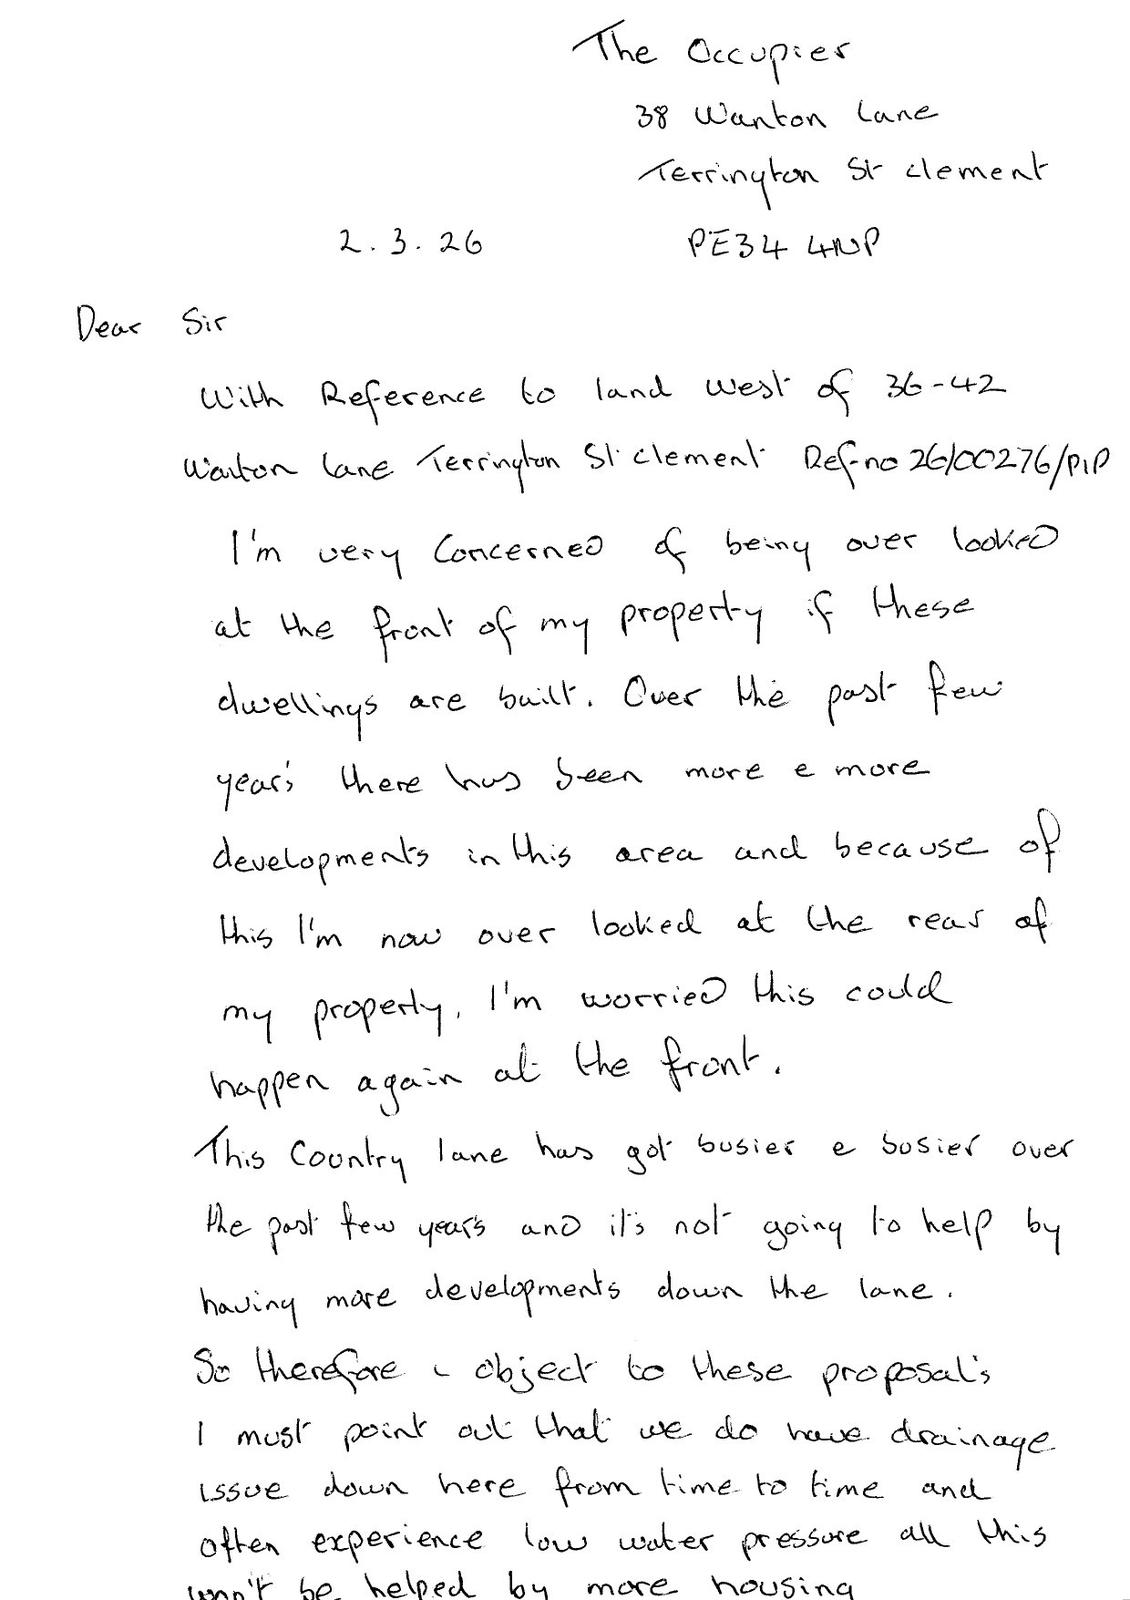 The Occupier
38 Wanton Lane
Terrington St Clement
2.3.26 PE34 4NP
Dear Sir
With Reference to land west of 36-42
Wanton Lane Terrington St Clement Ref-no 26/00276/PIP
I'm very Concerned of being over looked
at the front of my property if these
dwellings are built. Over the past few
year's there has been more e more
developments in this area and because of
this I'm now over looked at the rear of
my property, I'm worried this could
happen again at the front.
This Country lane has got busier e busier over
the past few year's and it's not going to help by
having more developments down the lane.
So therefore i object to these proposal's
I must point out that we do have drainage
issue down here from time to time and
often experience low water pressure all this
won't be helped by more housing